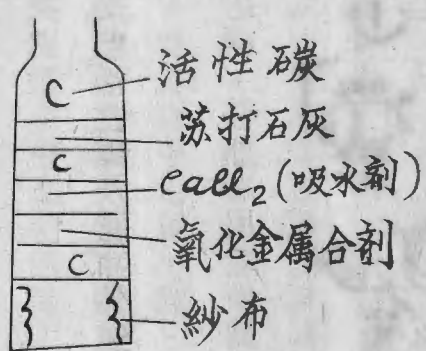 C
活性碳
苏打石灰
C
CaCl₂(吸水剂)
氧化金属合剂
C
紗布